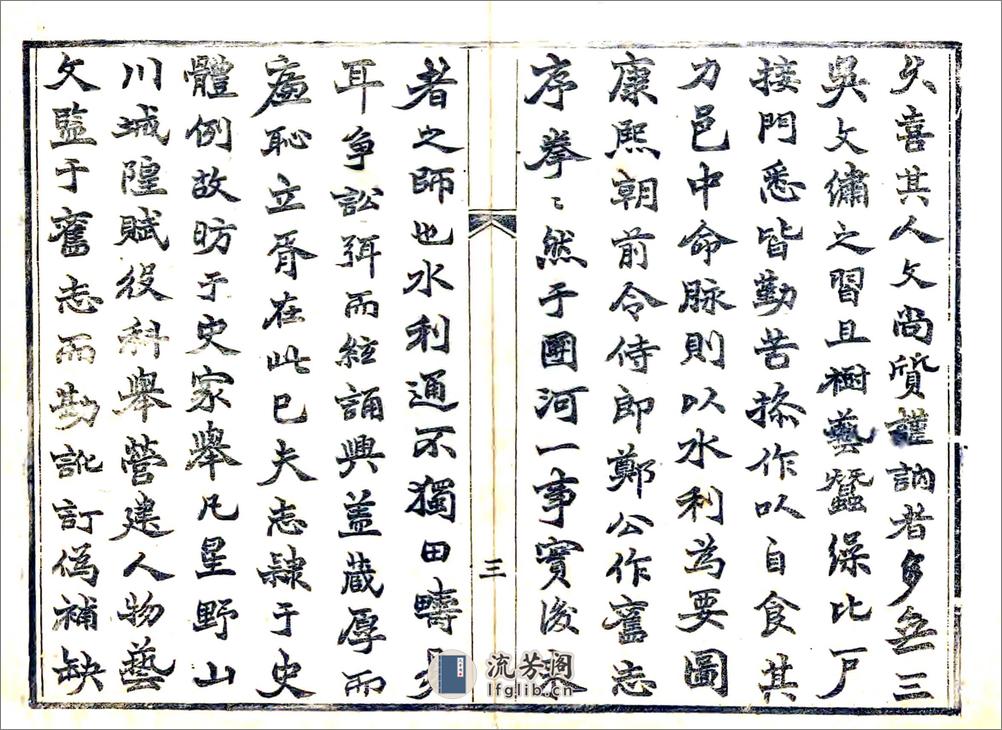 久喜其人文尚質謹訥者多無三
吳文繡之習且樹藝蠶繅比戸
接門悉皆勤苦操作以自食其
力邑中命脉則以水利為要圖
康熙朝前令侍郎鄭公作舊志
序拳〻然于圑河一事實後來
三
者之師也水利通不獨田疇美
耳争訟弭而絃誦興盖藏厚而
亷恥立胥在此已夫志隸于史
體例故昉于史家舉凡星野山
川城隍賦役科舉營建人物藝
文監于舊志而勘訛訂偽補缺
流芳阁
lfglib.cn